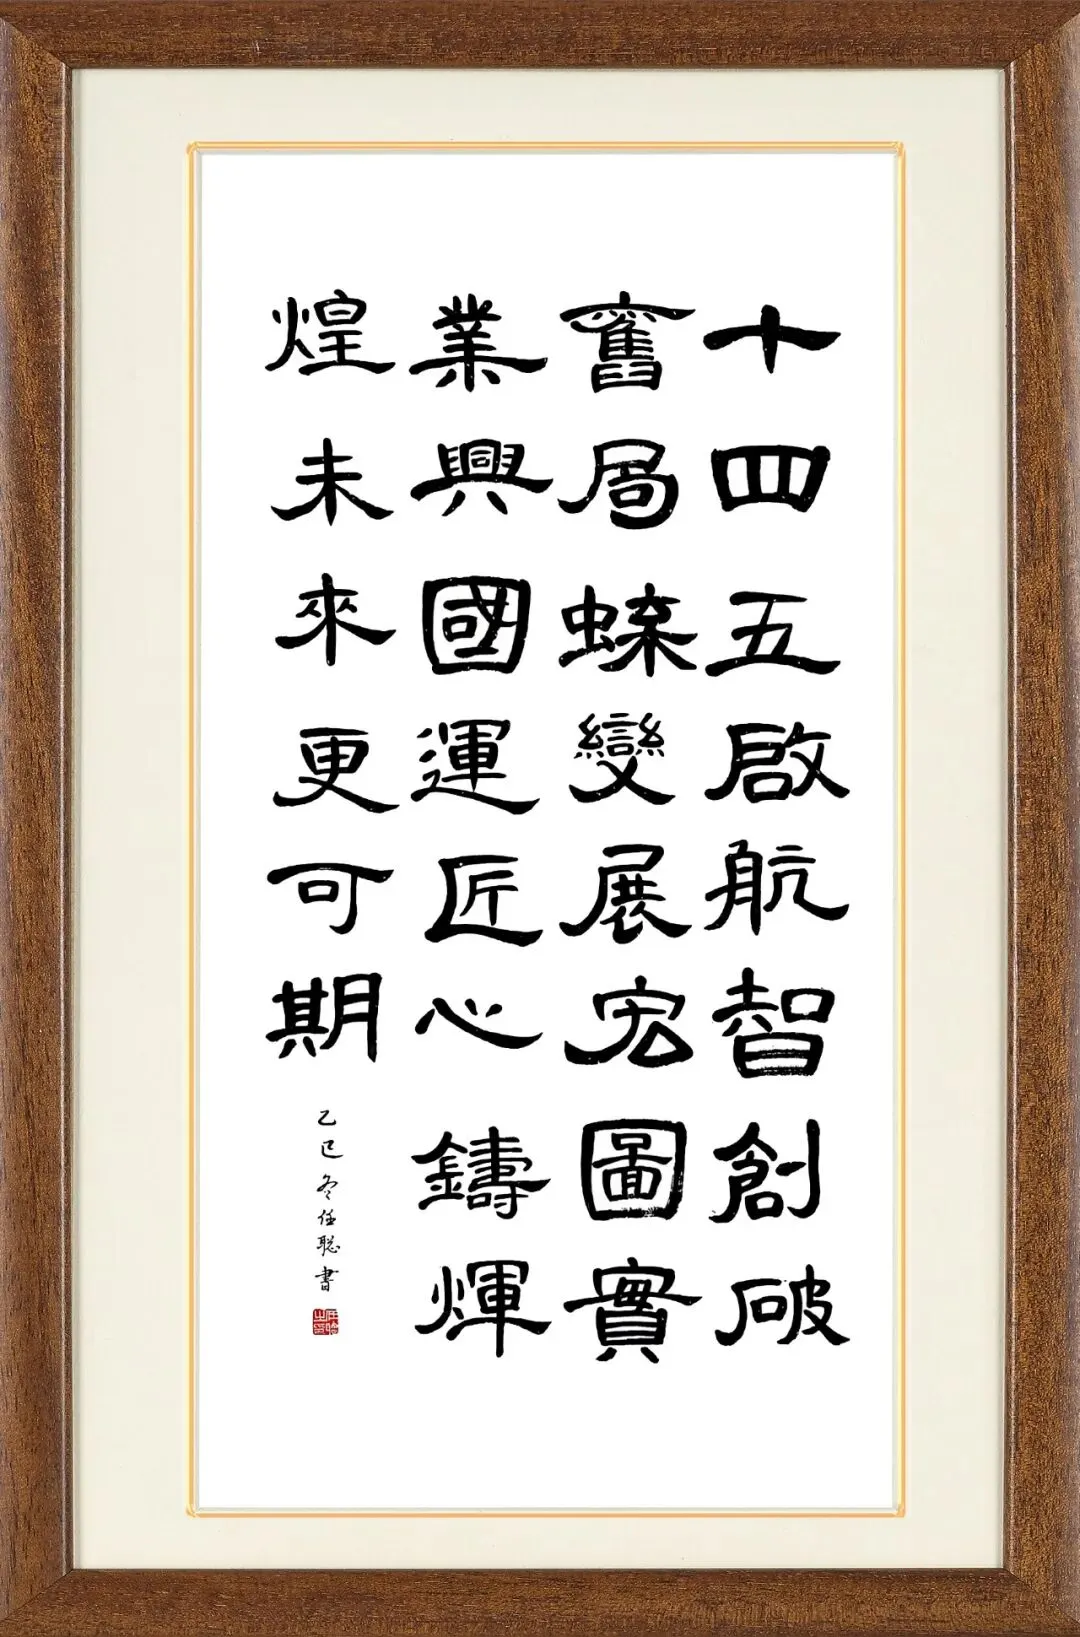 十四五啟航智創破
舊局蝶變展宏圖實
業興國運匠心鑄煇
煌未來更可期
乙巳冬任聪書